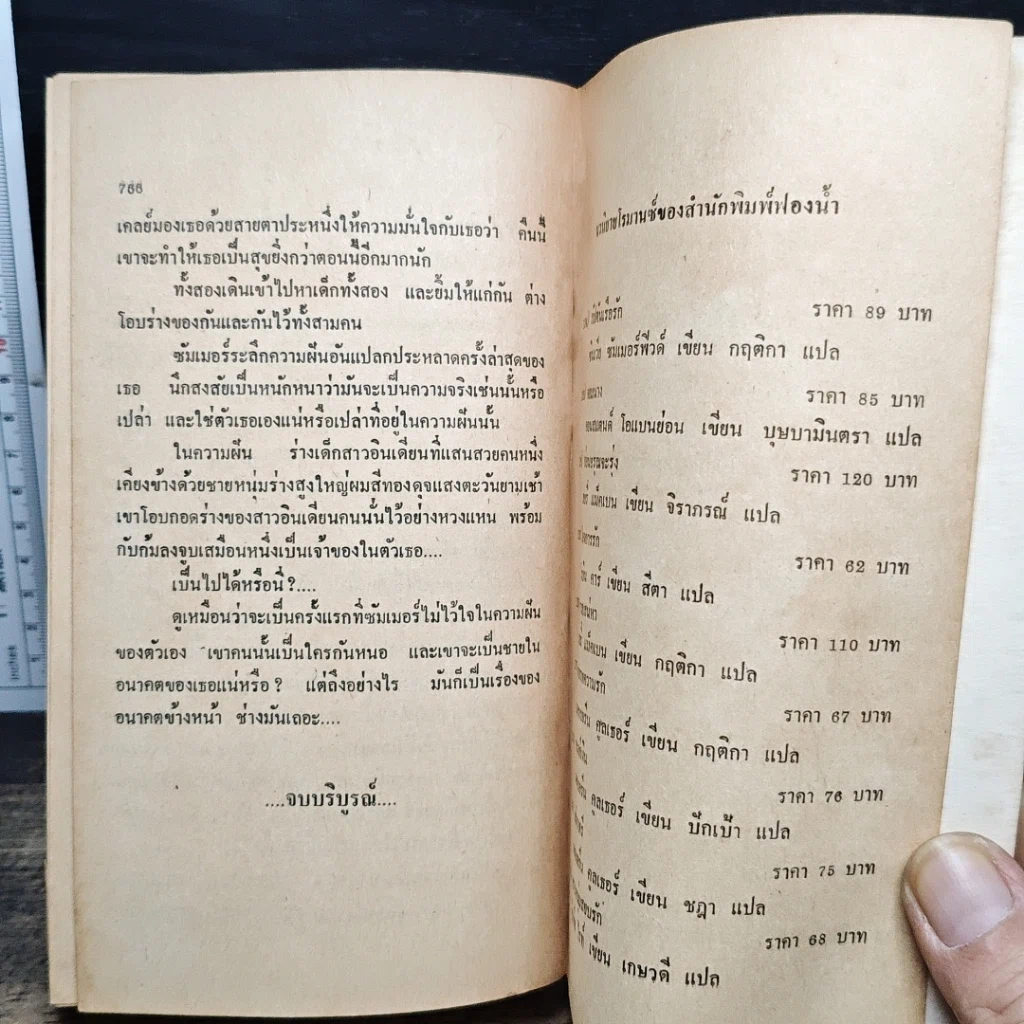 766
เคลย์มองเธอด้วยสายตาประหนึ่งให้ความมั่นใจกับเธอว่า คืนนี้
เขาจะทำให้เธอเป็นสุขยิ่งกว่าตอนนี้อีกมากนัก
ทั้งสองเดินเข้าไปหาเด็กทั้งสอง และยิ้มให้แก่กัน ต่าง
โอบร่างของกันและกันไว้ทั้งสามคน
ซัมเมอร์ระลึกความฝันอันแปลกประหลาดครั้งล่าสุดของ
เธอ นึกสงสัยเป็นหนักหนาว่ามันจะเป็นความจริงเช่นนั้นหรือ
เปล่า และใช่ตัวเธอเองแน่หรือเปล่าที่อยู่ในความฝันนั้น
ในความฝัน ร่างเด็กสาวอินเดียนที่แสนสวยคนหนึ่ง
เคียงข้างด้วยชายหนุ่มร่างสูงใหญ่ผมสีทองดุจแสงตะวันยามเช้า
เขาโอบกอดร่างของสาวอินเดียนคนนั้นไว้อย่างหวงแหน พร้อม
กับก้มลงจูบเสมือนหนึ่งเป็นเจ้าของในตัวเธอ....
เป็นไปได้หรือนี่ ?....
ดูเหมือนว่าจะเป็นครั้งแรกที่ซัมเมอร์ไม่ไว้ใจในความฝัน
ของตัวเอง เขาคนนั้นเป็นใครกันหนอ และเขาจะเป็นชายใน
อนาคตของเธอแน่หรือ ? แต่ถึงอย่างไร มันก็เป็นเรื่องของ
อนาคตข้างหน้า ช่างมันเถอะ....
....จบบริบูรณ์....
โรมานซ์ของสำนักพิมพ์ฟองน้ำ
ราคา 89 บาท
ซัมเมอร์พีวด์ เขียน กฤติกา แปล
ราคา 85 บาท
โอแบนย่อน เขียน บุษบามินตรา แปล
ราคา 120 บาท
แม็คเบน เขียน จิราภรณ์ แปล
ราคา 62 บาท
คาร์ เขียน สีตา แปล
ราคา 110 บาท
แม็คเบน เขียน กฤติกา แปล
ราคา 67 บาท
คูลเธอร์ เขียน กฤติกา แปล
ราคา 76 บาท
คูลเธอร์ เขียน ปักเป้า แปล
ราคา 75 บาท
คูลเธอร์ เขียน ชฎา แปล
ราคา 68 บาท
เขียน เกษวดี แปล